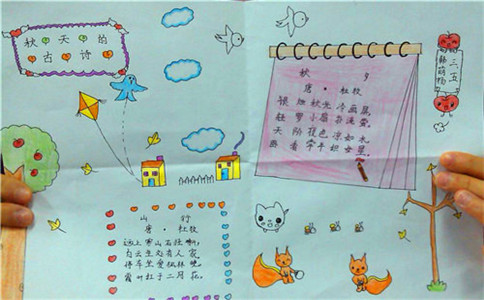 秋天的
古诗
秋夕
唐·杜牧
银烛秋光冷画屏,
轻罗小扇扑流萤。
天阶夜色凉如水,
卧看牵牛织女星。
三、五
山行
唐·杜牧
远上寒山石径斜,
白云生处有人家。
停车坐爱枫林晚,
霜叶红于二月花。